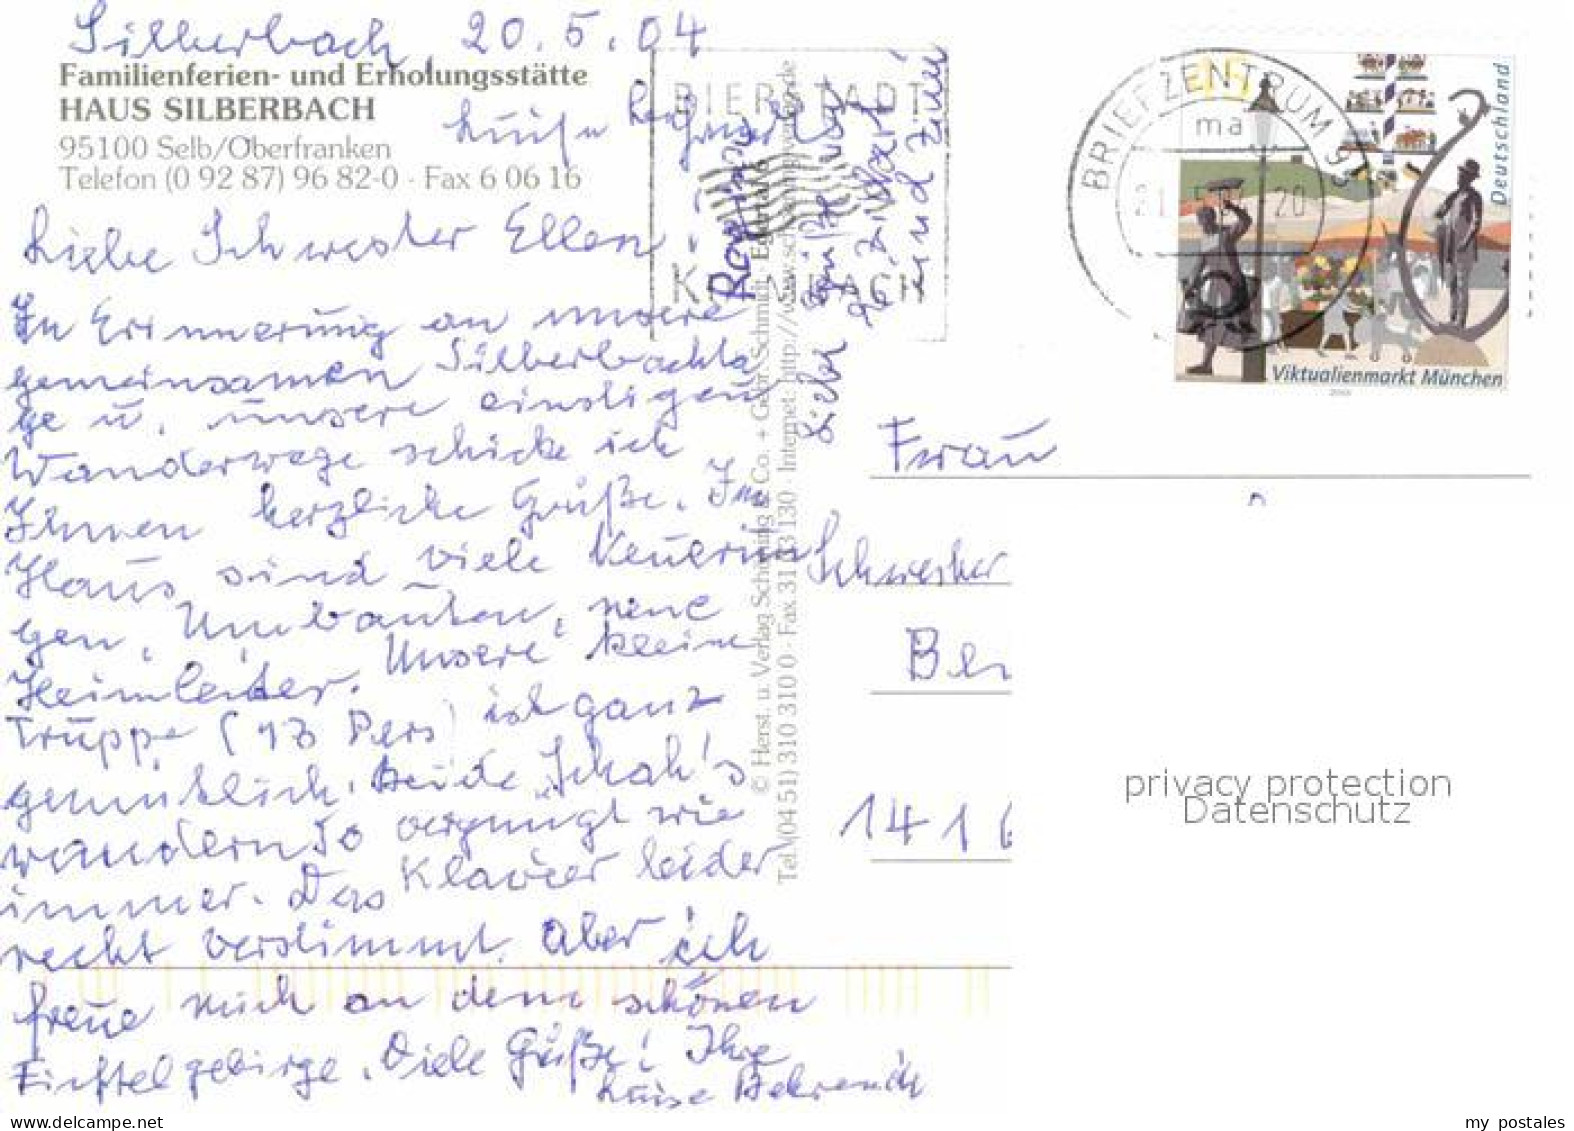 Silberbach, 20.5.04
Familienferien- und Erholungsstätte
HAUS SILBERBACH
95100 Selb/Oberfranken
Telefon (0 92 87) 96 82-0 · Fax 6 06 16
Liebe Schwester Ellen,
In Erinnerung an unsere
gemeinsamen Silberbachta
ge u. unsere einstigen
Wanderwege schicke ich
Ihnen herzliche Grüße. Im
Haus sind viele Neuerun
gen, Umbauten, neue
Heimleiter. Unsere kleine
Truppe (13 Pers) ist ganz
gemütlich. Beide "Schah's
wandern so vergnügt wie
immer. Das Klavier leider
recht verstimmt. Aber ich
freue mich an dem schönen
Fichtelgebirge. Viele Grüße! Ihre
Luise Behrendt
BIERSTADT
Liebe Grüße von
und
© Herst. u. Verlag Schöning & Co. + Gebr. Schmidt
Tel. (04 51) 310 310 0 · Fax 31 03 130 · Internet: http://www.schoening-verlag.de
BRIEFZENTRUM 95
ma
20
Deutschland
Viktualienmarkt München
Frau
Schwester
Ber
1416
privacy protection
Datenschutz
delcampe.net
my_postales